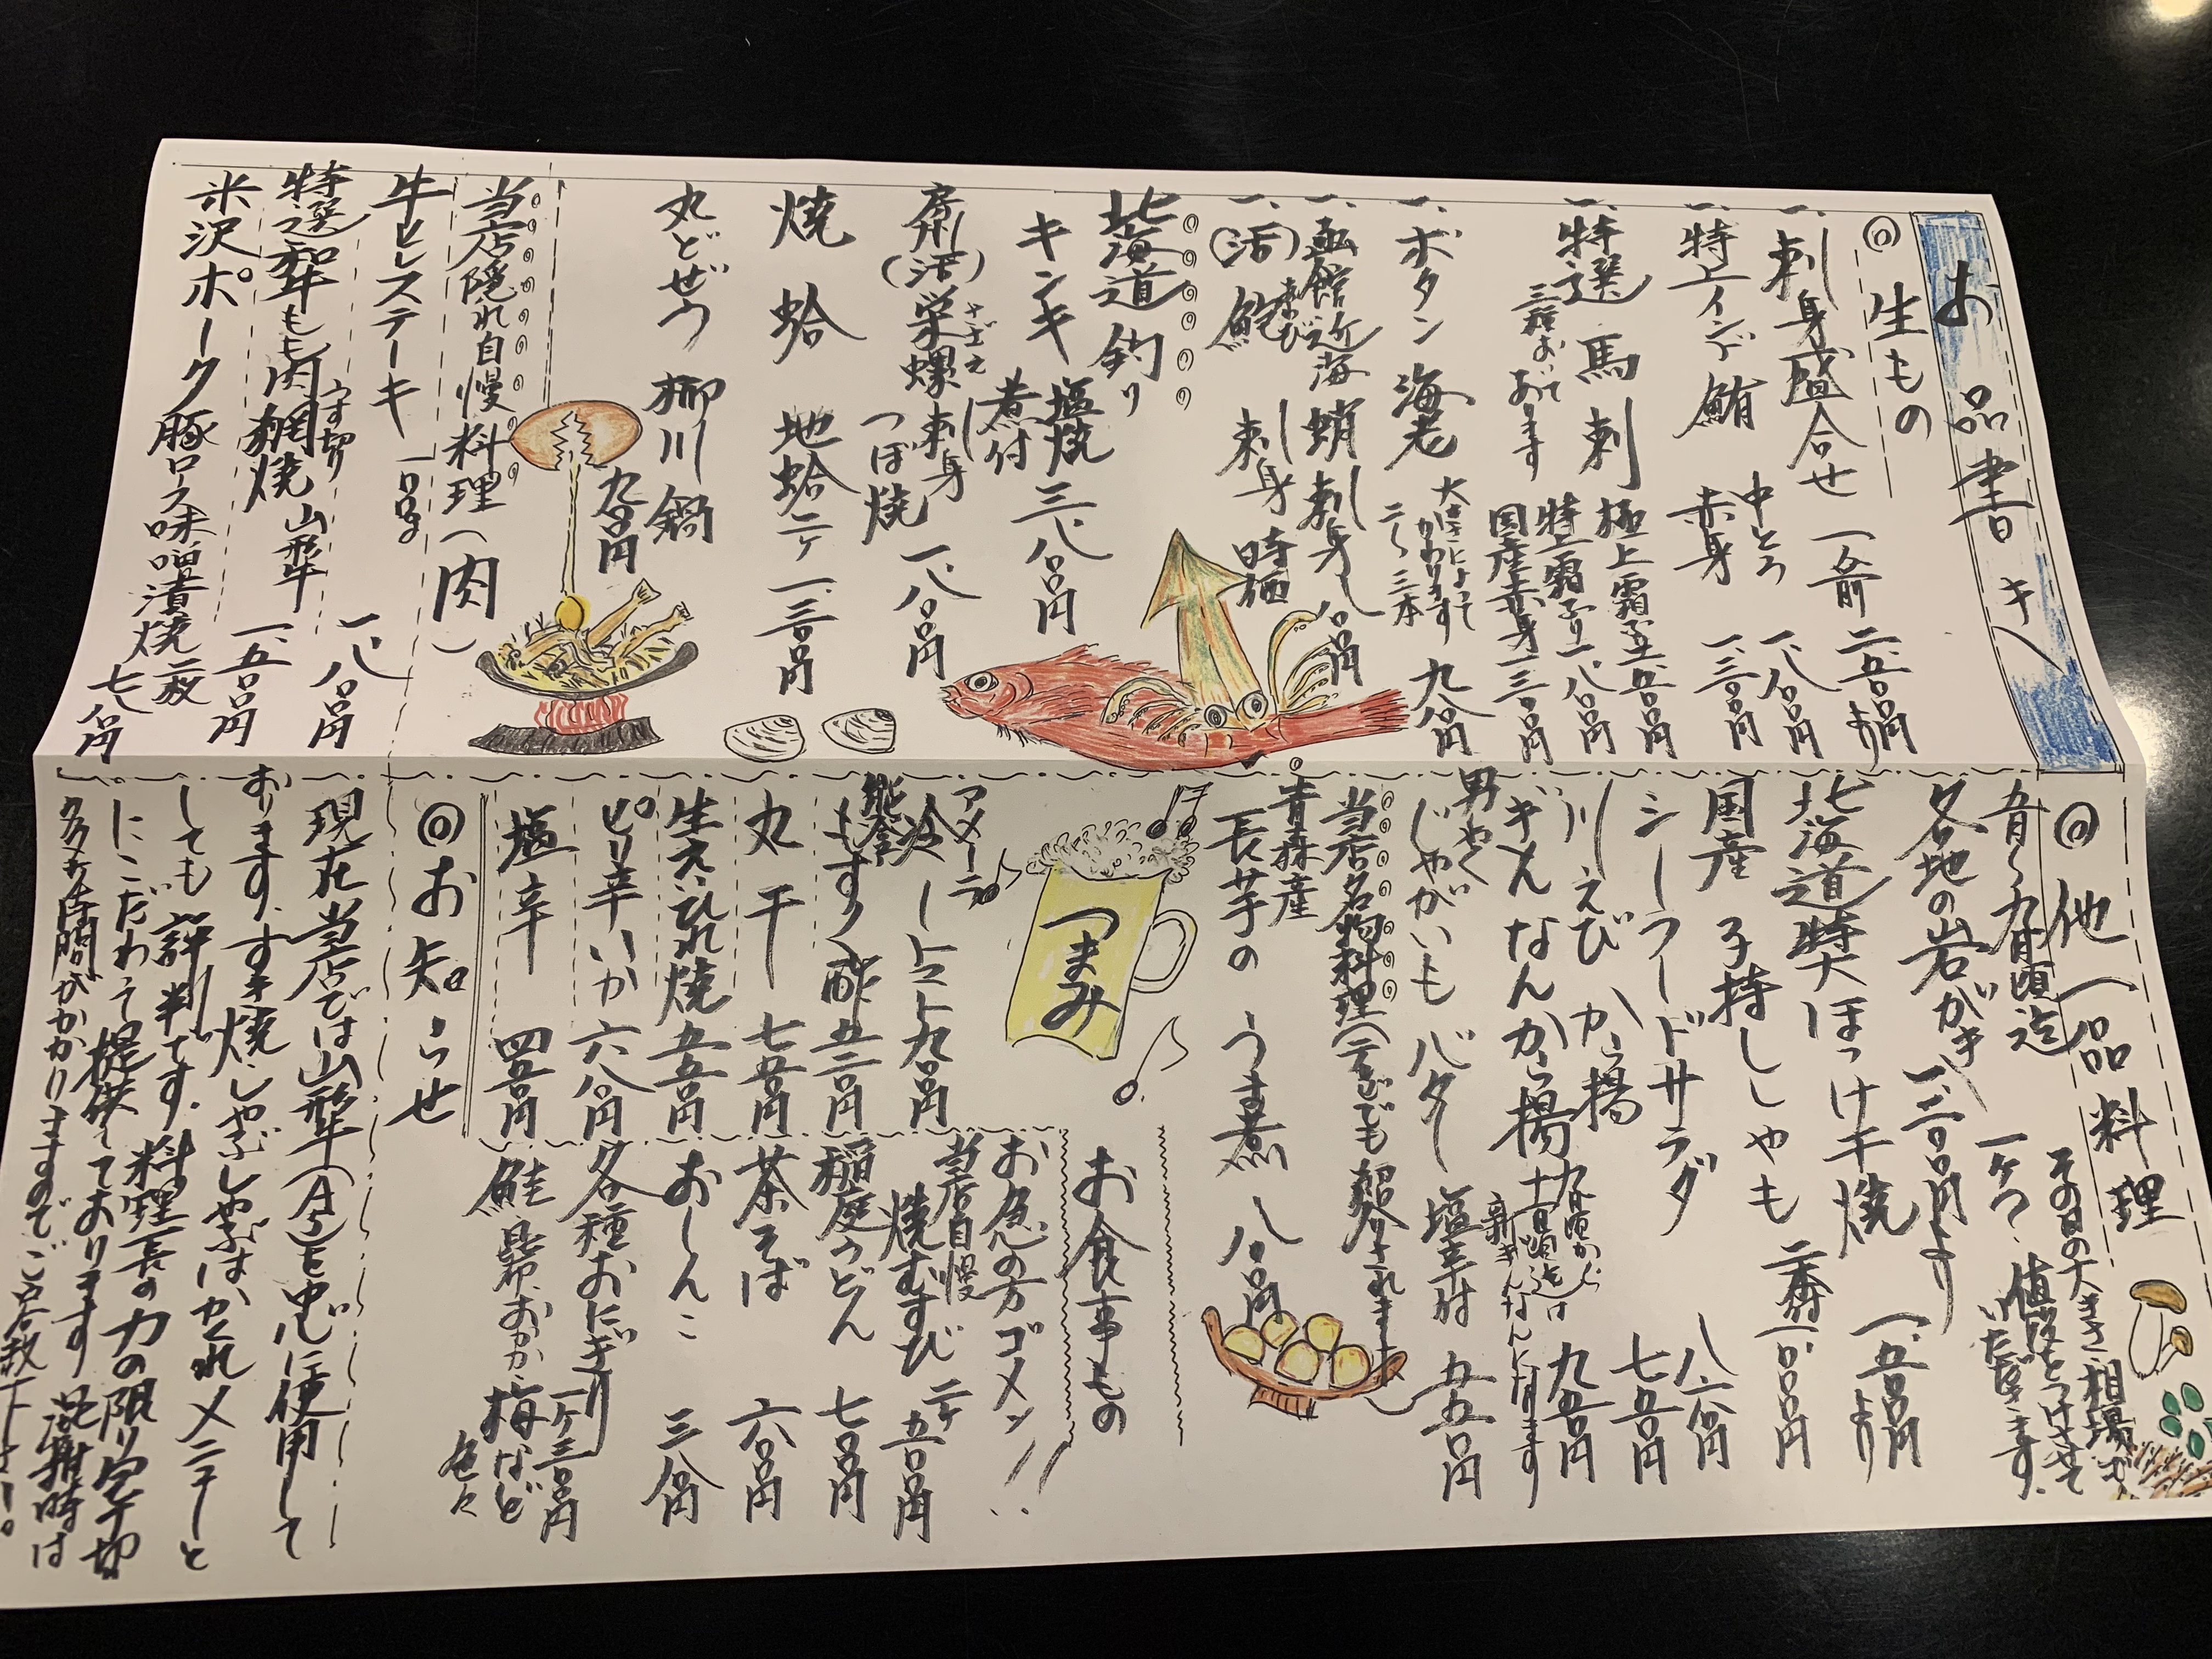 お品書き
◎生もの
一、刺身盛合せ 一人前 二、五〇〇円より
一、特上インデ鮪 中とろ 一、八〇〇円
赤身 一、三〇〇円
一、特選 馬刺 極上霜ふり 二、五〇〇円
三種おいてあります 特上霜ふり 一、八〇〇円
国産赤身 一、三〇〇円
一、ボタン海老 大きさによってかわります 二〜三本 九八〇円
一、函館近海 蛸刺身 八〇〇円
一、(活)鮑 刺身 時価
北海道 釣り
キンキ 塩焼 煮付 三、八〇〇円
(活)栄螺 さざえ 刺身 つぼ焼 一、八〇〇円
焼蛤 地蛤 二ケ 一、三〇〇円
丸どぜう 柳川鍋 九八〇円
当店隠れ自慢料理(肉)
牛ヒレステーキ 一、八〇〇円
特選和牛もも肉網焼 うす切り 山形牛 一、五〇〇円
米沢ポーク豚ロース味噌漬焼 二枚 七八〇円
◎他一品料理
その日の大きさ、相場で
値段をつけさせて
いただきます。
五月〜九月頃迄 一ケづつ
各地の岩がき 一、三〇〇円より
北海道特大ほっけ干焼 一、五〇〇円より
国産子持ししゃも 二本付 一、三〇〇円
シーフードサラダ 八六〇円
川えび から揚 七五〇円
ぎんなんから揚 九月頃から十一月頃迄は新ぎんなんになります 九五〇円
男しゃく じゃがいもバター 塩辛付 五五〇円
当店名物料理(テレビでも紹介されました)
青森産
長芋のうま煮 八〇〇円
つまみ
アメーラ
冷しトマト 九〇〇円
能登 もずく酢 五三〇円
丸干 七五〇円
生えいひれ焼 五五〇円
ピリ辛いか 六八〇円
塩辛 四五〇円
お食事もの
お急ぎの方ゴメン!!
当店自慢
焼むすび 二ケ 五〇〇円
稲庭うどん 七〇〇円
茶そば 六〇〇円
おしんこ 三八〇円
各種おにぎり 一ケ 三〇〇円
鮭、昆布、おかか、梅など色々
◎お知らせ
現在当店では山形牛(A5)を中心に使用して
おります。すき焼、しゃぶしゃぶは、かくれメニューと
しても評判です。料理長の力の限り食材
にこだわって提供しております 混雑時は
多少お時間がかかりますのでご容赦下さい。